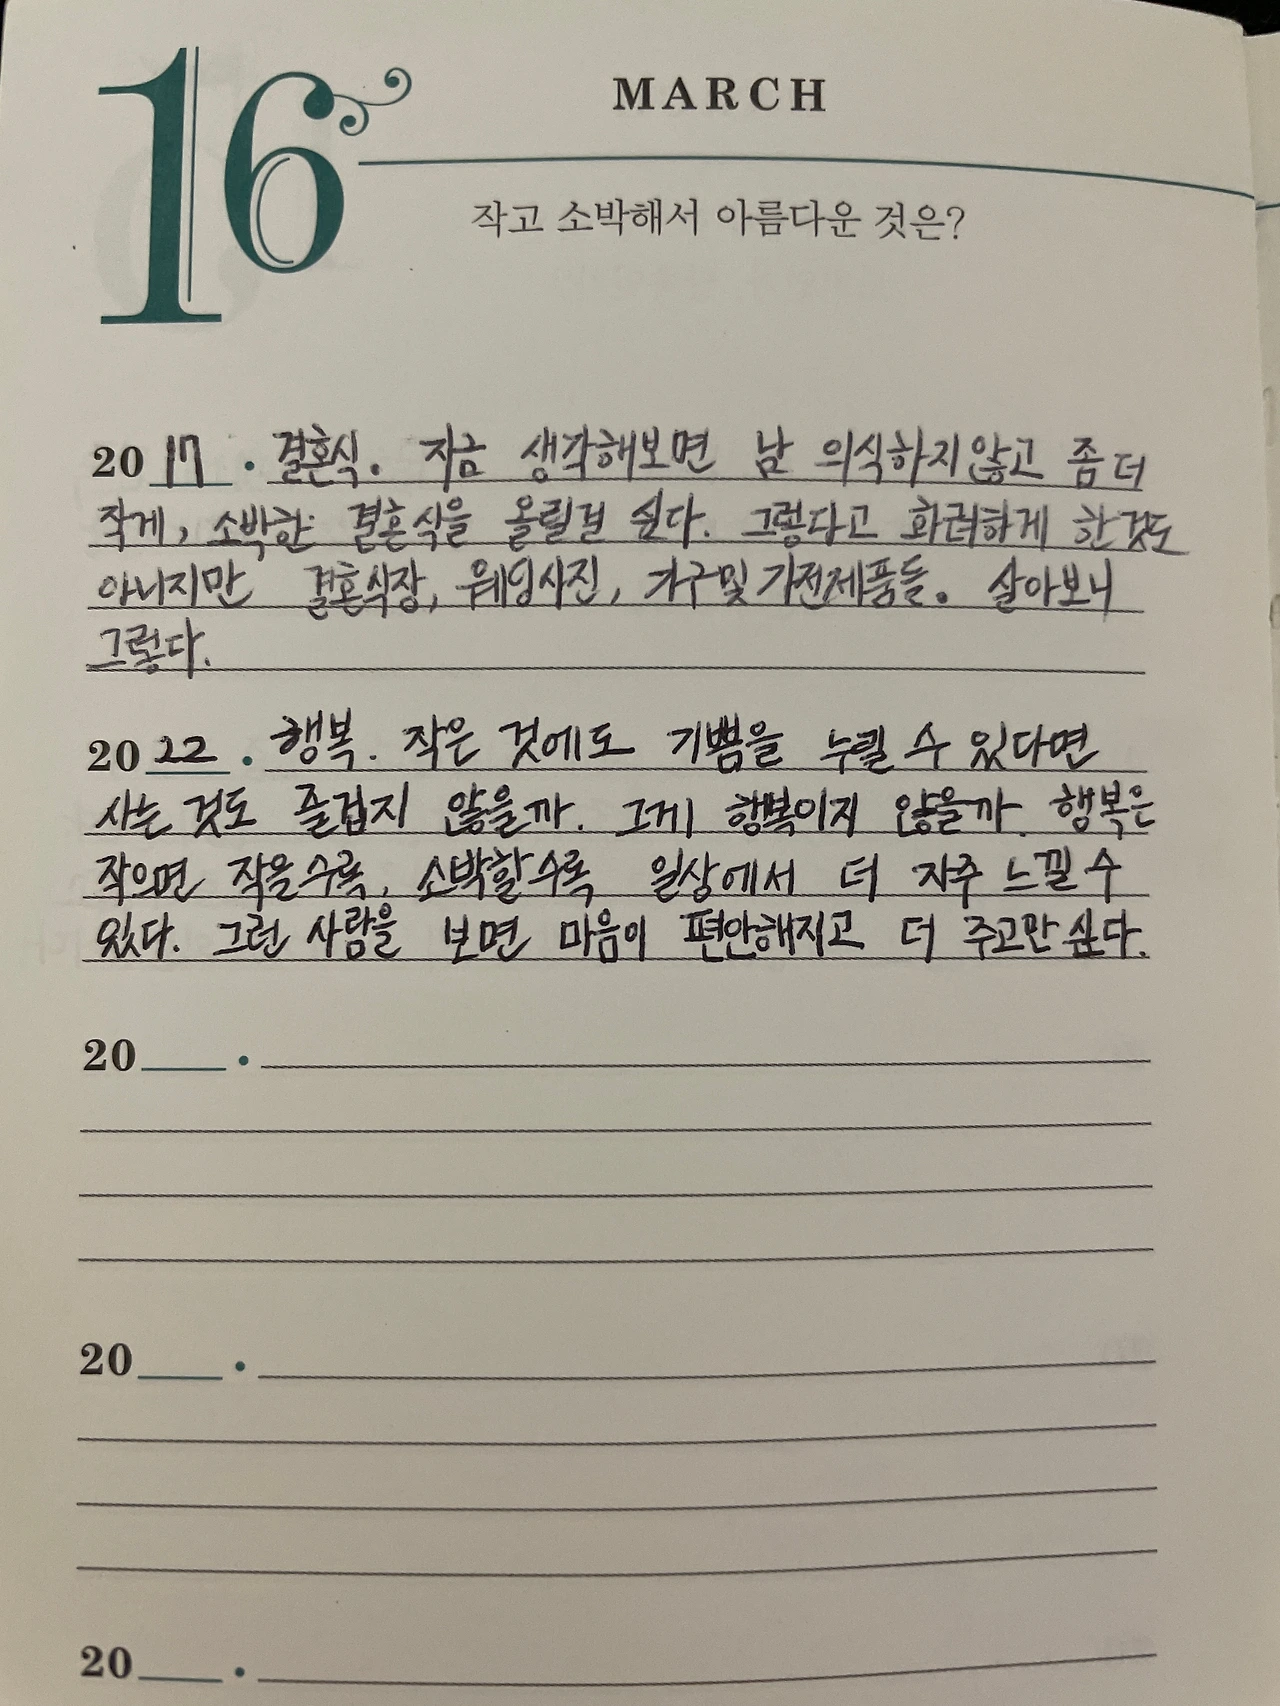 16
MARCH
작고 소박해서 아름다운 것은?
2017 · 결혼식. 지금 생각해보면 남 의식하지않고 좀 더
작게, 소박한 결혼식을 올릴걸 싶다. 그렇다고 화려하게 한것도
아니지만 결혼식장, 웨딩사진, 가구및 가전제품들. 살아보니
그렇다.
2022 · 행복. 작은 것에도 기쁨을 누릴 수 있다면
사는 것도 즐겁지 않을까. 그게 행복이지 않을까. 행복은
작으면 작을수록, 소박할수록 일상에서 더 자주 느낄 수
있다. 그런 사람을 보면 마음이 편안해지고 더 주고만 싶다.
20 ·
20 ·
20 ·